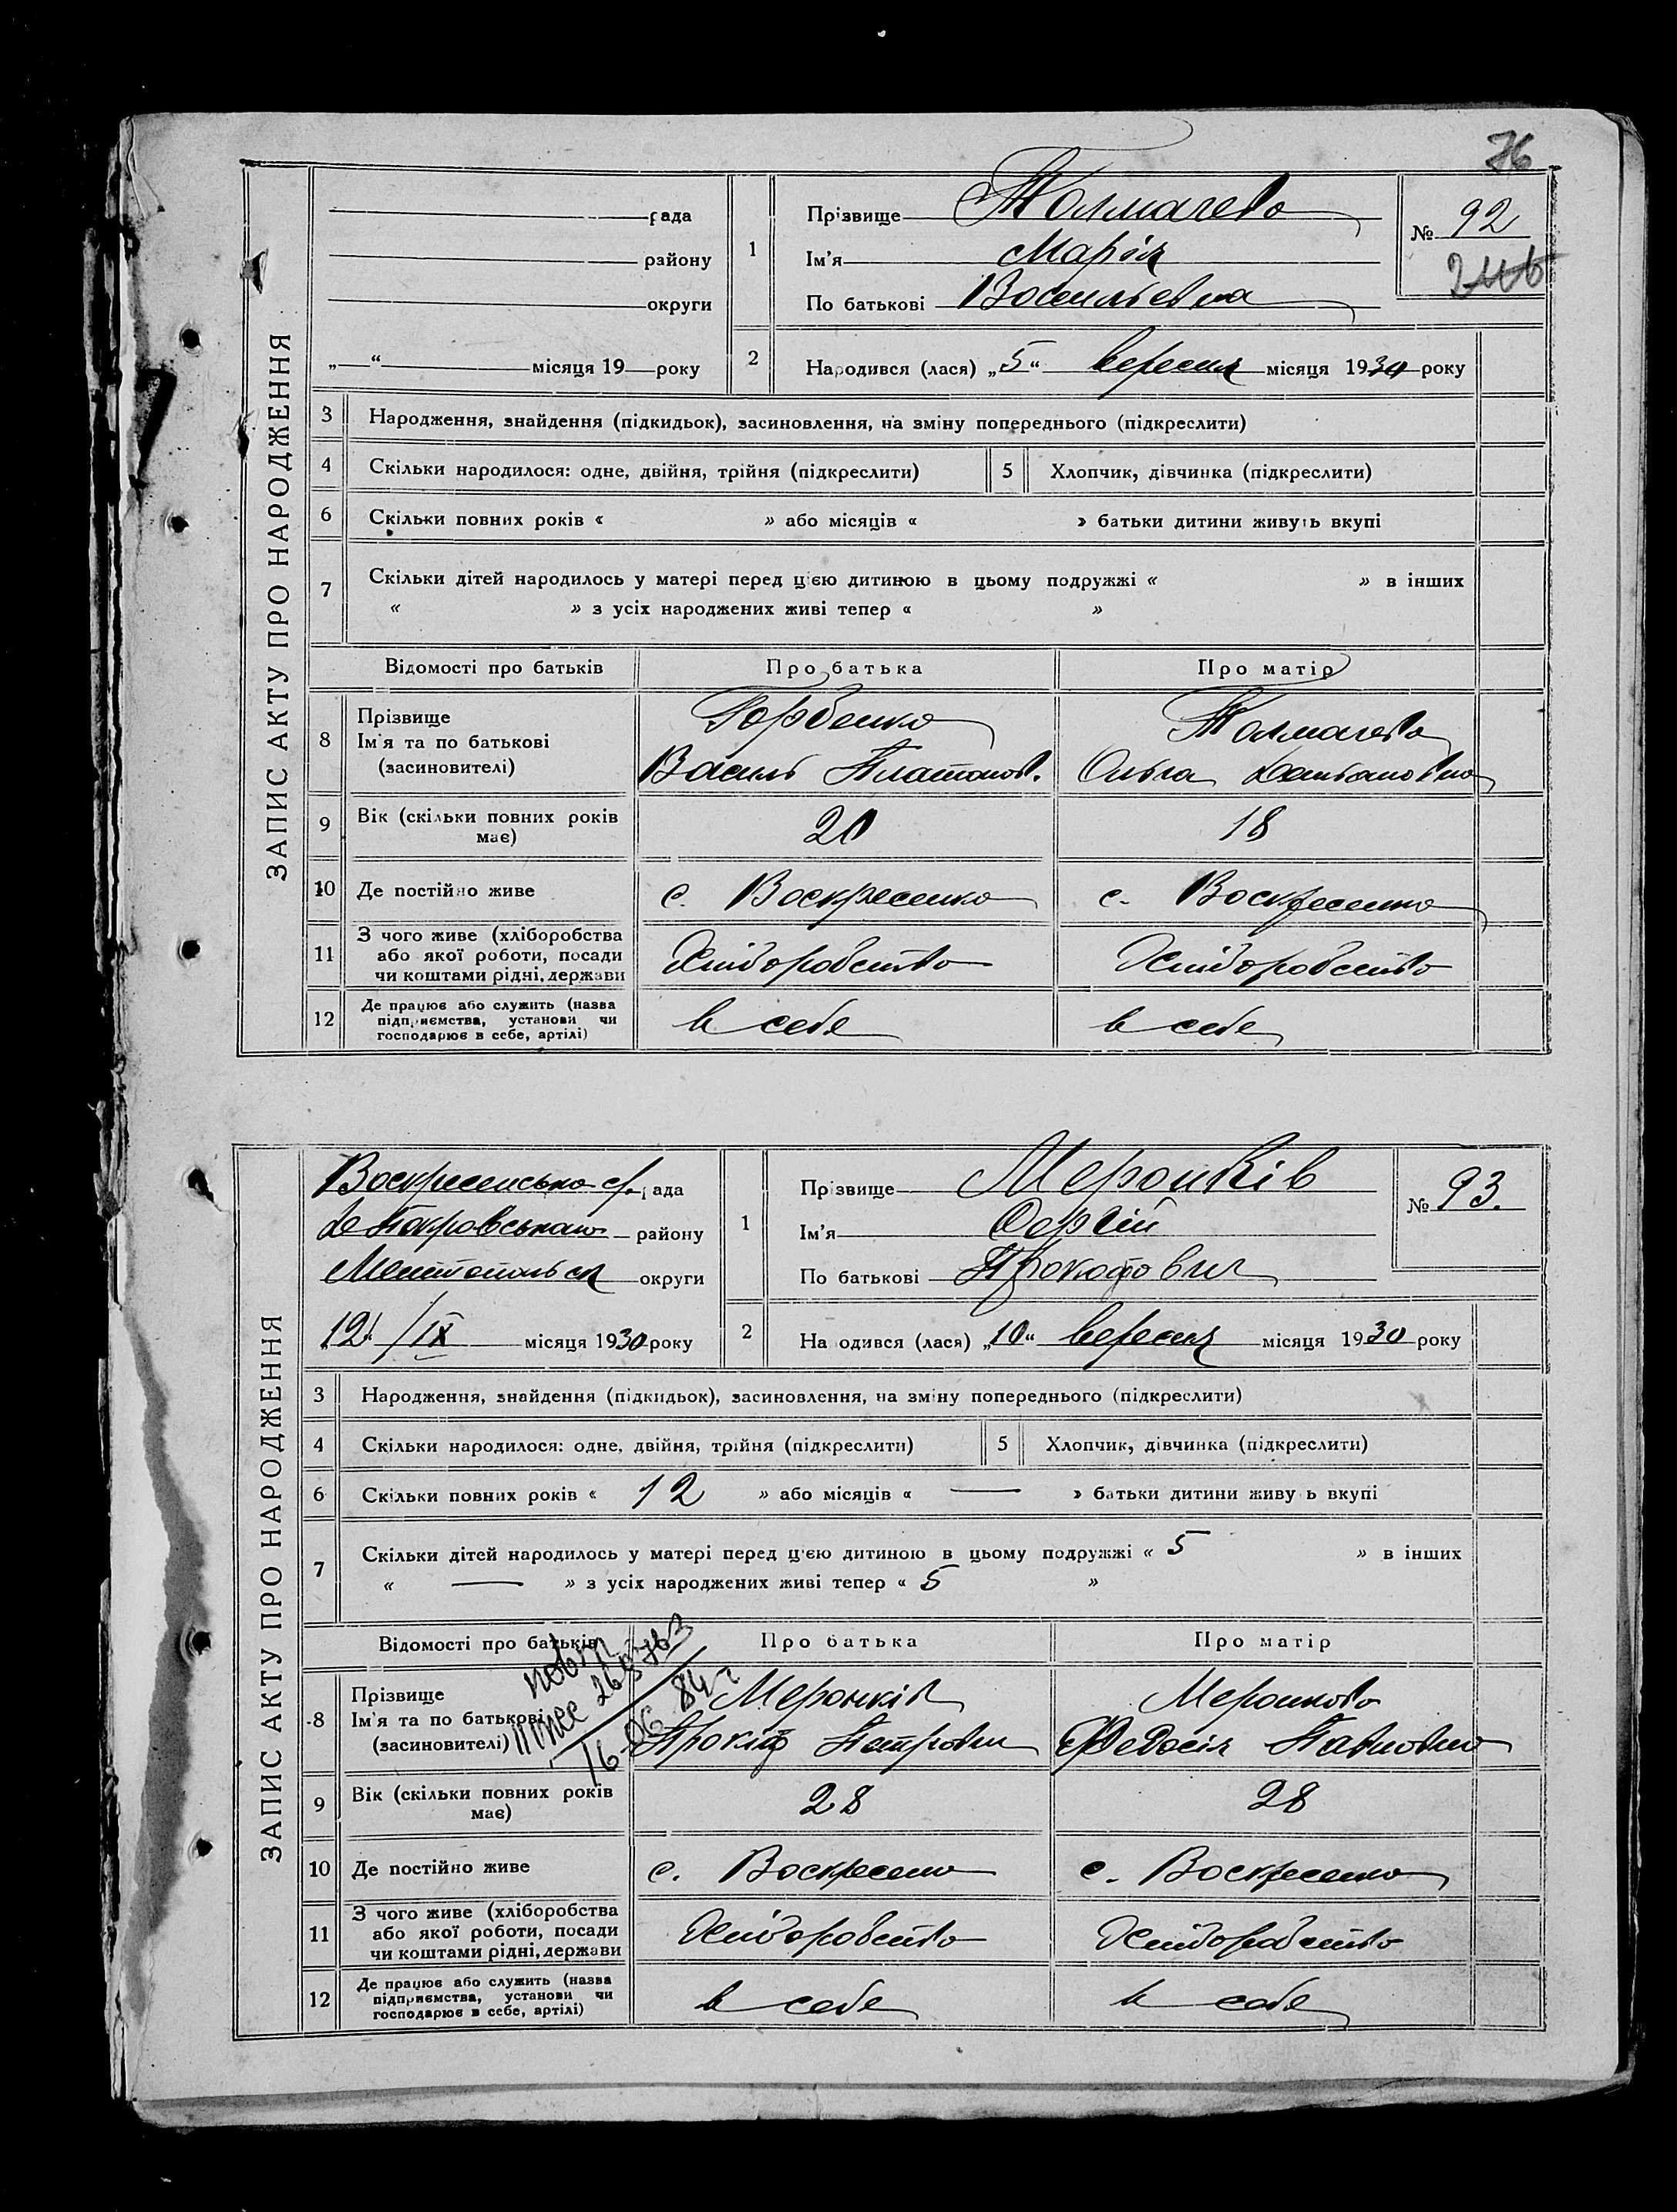 76
ЗАПИС АКТУ ПРО НАРОДЖЕННЯ
рада
району
округи
„ “ місяця 19 року
1
Прізвище Толмачева
Ім'я Марія
По батькові Васильевна
№ 92
2
Народився (лася) „5“ вересня місяця 1930 року
3 Народження, знайдення (підкидьок), засиновлення, на зміну попереднього (підкреслити)
4 Скільки народилося: одне, двійня, трійня (підкреслити) 5 Хлопчик, дівчинка (підкреслити)
6 Скільки повних років « » або місяців « » батьки дитини живуть вкупі
7 Скільки дітей народилось у матері перед цією дитиною в цьому подружжі « » в інших
« » з усіх народжених живі тепер « »
Відомості про батьків Про батька Про матір
8 Прізвище Горбенко Толмачева
Ім'я та по батькові
(засиновителі) Василь Платонов. Ольга Демьяновна
9 Вік (скільки повних років має) 20 18
10 Де постійно живе с. Воскресенка с. Воскресенка
11 З чого живе (хліборобства
або якої роботи, посади
чи коштами рідні, держави Хліборобство Хліборобство
12 Де працює або служить (назва
підприємства, установи чи
господарює в себе, артілі) в себе в себе
ЗАПИС АКТУ ПРО НАРОДЖЕННЯ
Воскресенська с/. рада
Покровського району
Мелітопільск округи
12 /IX місяця 1930 року
1
Прізвище Меронків
Ім'я Сергій
По батькові Прокофович
№ 93.
2
Народився (лася) „10“ вересня місяця 1930 року
3 Народження, знайдення (підкидьок), засиновлення, на зміну попереднього (підкреслити)
4 Скільки народилося: одне, двійня, трійня (підкреслити) 5 Хлопчик, дівчинка (підкреслити)
6 Скільки повних років « 12 » або місяців « — » батьки дитини живуть вкупі
7 Скільки дітей народилось у матері перед цією дитиною в цьому подружжі « 5 » в інших
« — » з усіх народжених живі тепер « 5 »
Відомості про батьків Про батька Про матір
повт
16 06 84 г
8 Прізвище Меронків Меронкова
Ім'я та по батькові
(засиновителі) Прокіф Петрович Федосія Павловна
9 Вік (скільки повних років має) 28 28
10 Де постійно живе с. Воскресенка с. Воскресенка
11 З чого живе (хліборобства
або якої роботи, посади
чи коштами рідні, держави Хліборобство Хліборобство
12 Де працює або служить (назва
підприємства, установи чи
господарює в себе, артілі) в себе в себе